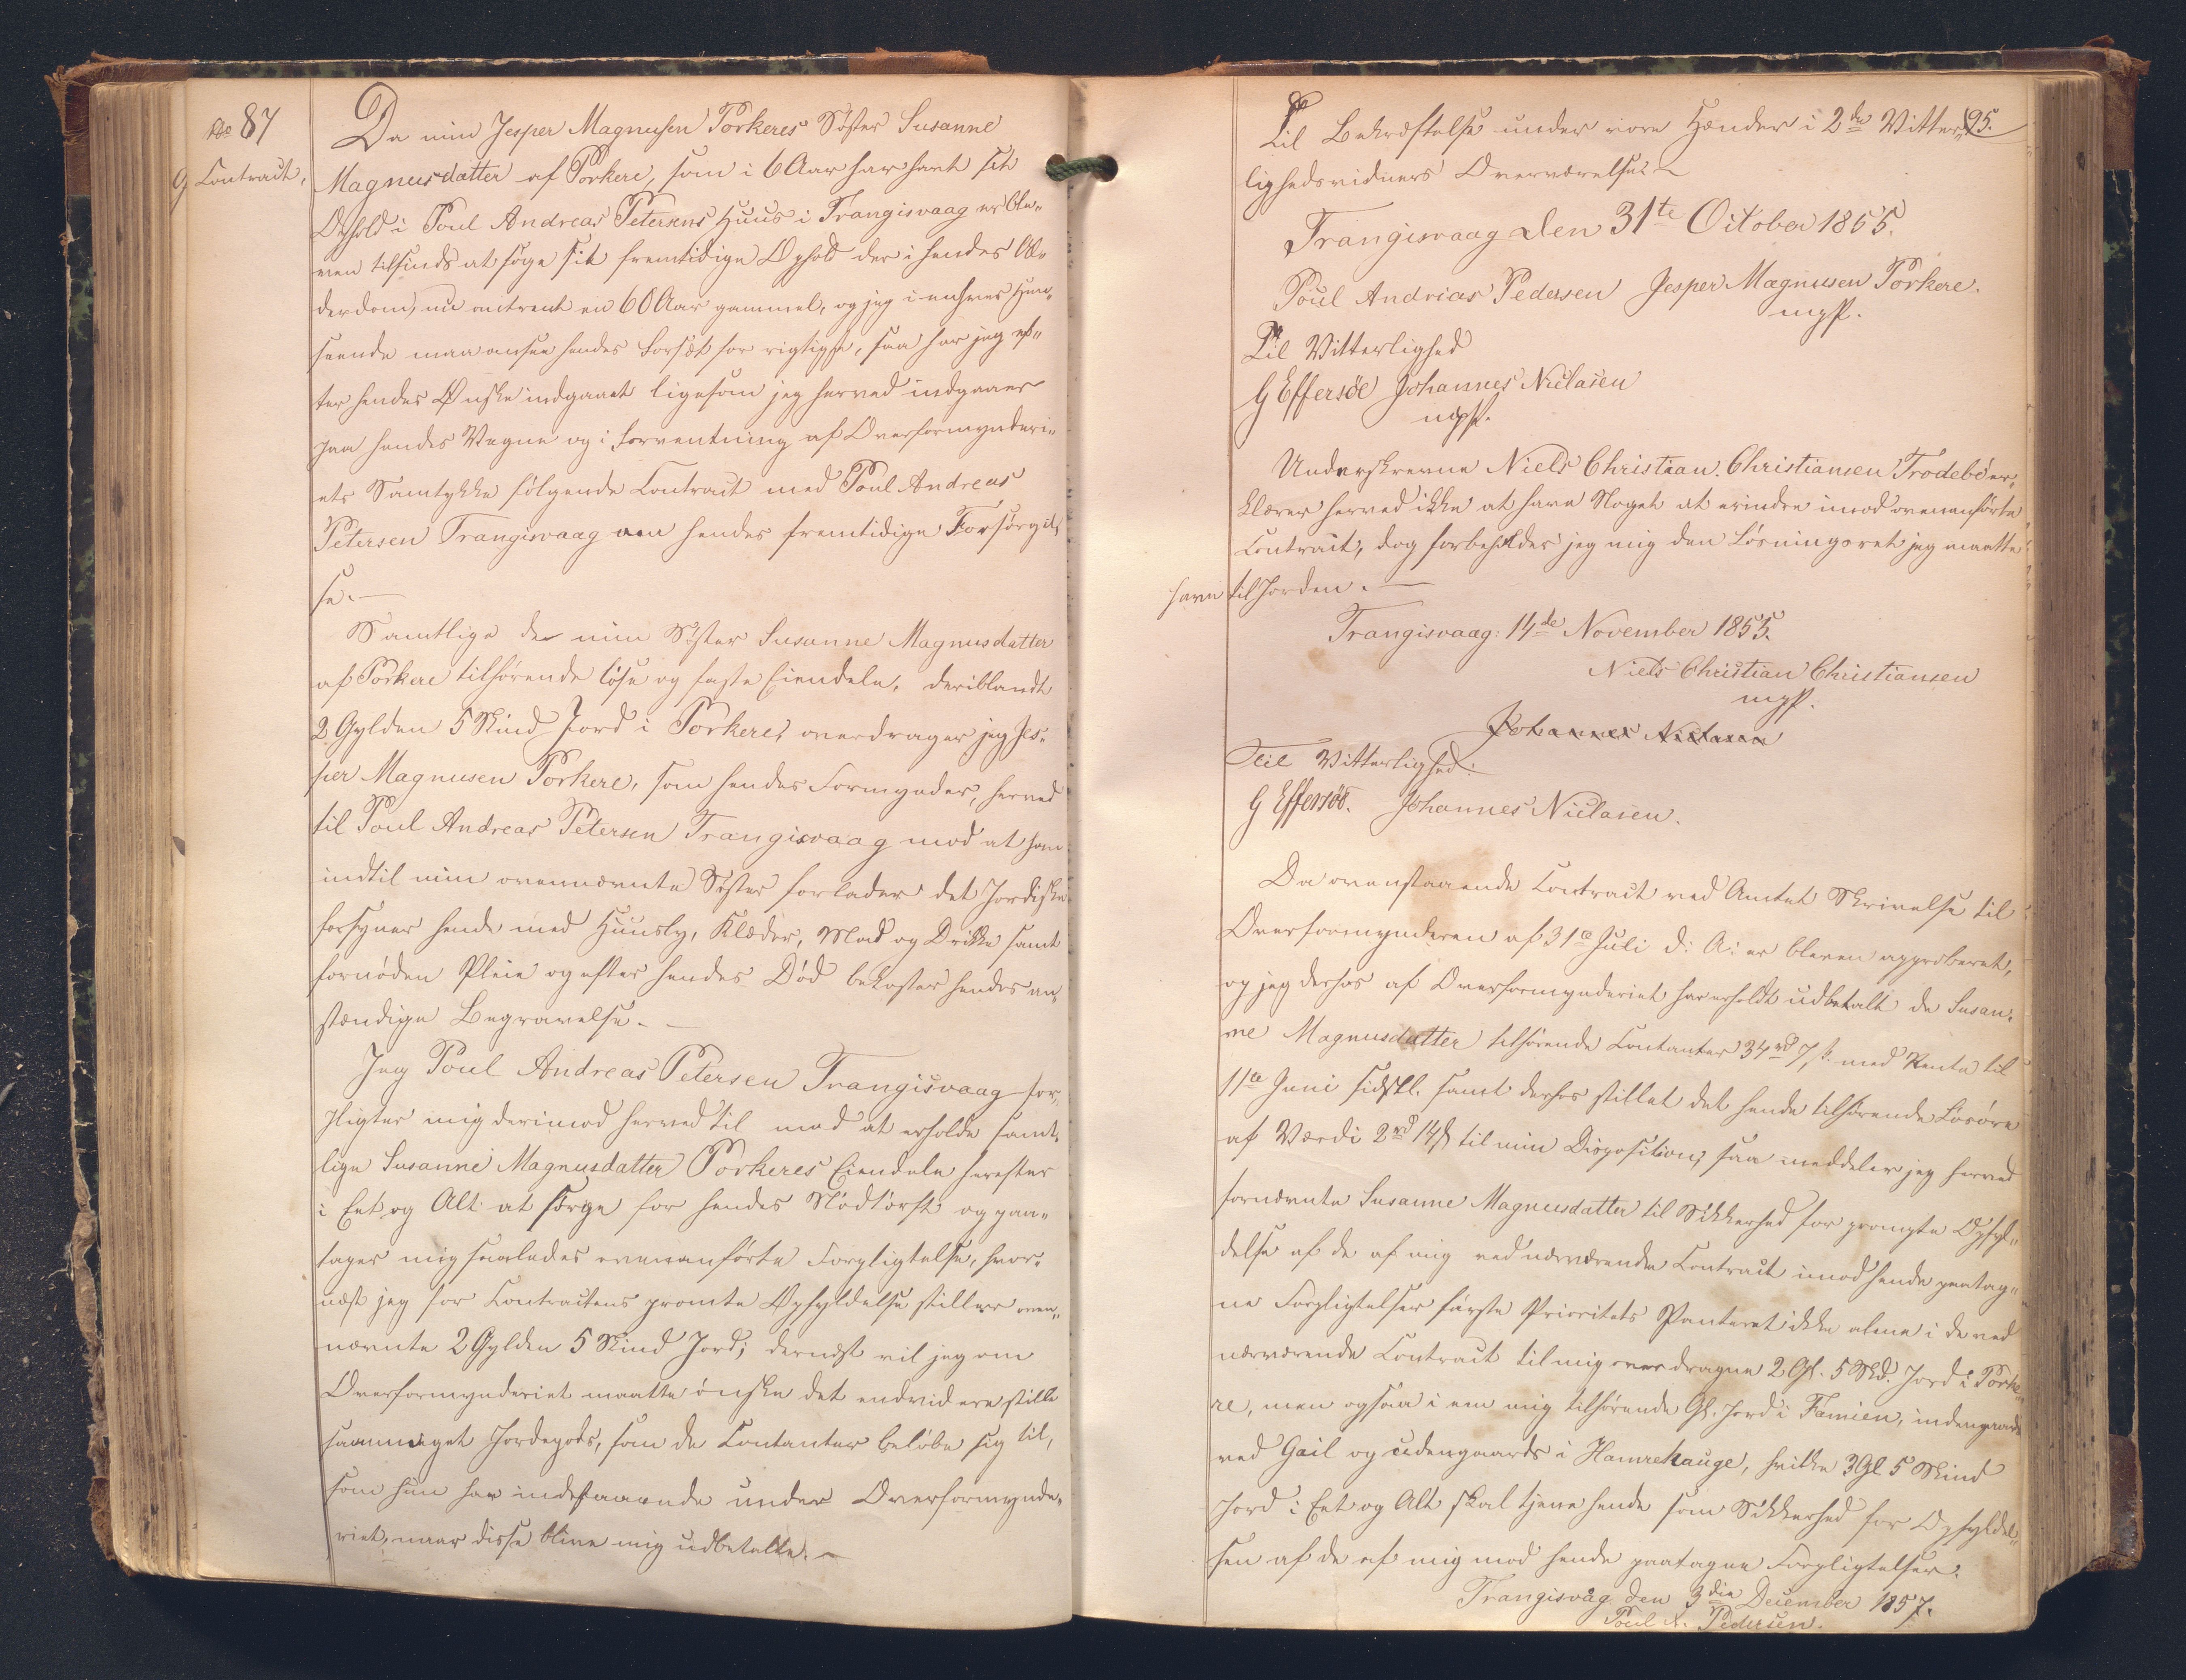 No 87
Contract,
Da min Jesper Magnusen Porkeres Søster Susanne
Magnusdatter af Porkere, som i 6 Aar har havt sit
Ophold i Poul Andreas Petersens Huus i Trangisvaag er ble-
ven tilsinds at søge sit fremtidige Ophold der i hendes Al-
derdom, nu omtrent en 60 Aar gammel, og jeg i enhver Hen-
seende maa ansee hendes Forsæt for rigtigst, saa har jeg ef-
ter hendes Ønske indgaaet ligesom jeg herved indgaaer
paa hendes Vegne og i Forventning af Overformynderi-
ets Samtykke følgende Contract med Poul Andreas
Petersen Trangisvaag om hendes fremtidige Forsørgel-
se.—
Samtlige de min Søster Susanne Magnusdatter
af Porkere tilhørende løse og faste Eiendele, deriblandt
2 Gylden 5 Skind Jord i Porkere, overdrager jeg Jes-
per Magnusen Porkere, som hendes Formynder, herved
til Poul Andreas Petersen Trangisvaag mod at han
indtil min ovennævnte Søster forlader det Jordiske
forsyner hende med Huusly, Klæder, Mad og Drikke samt
fornøden Pleie og efter hendes Død bekoster hendes an-
stændige Begravelse.—
Jeg Poul Andreas Petersen Trangisvaag for-
pligter mig derimod herved til mod at erholde samt-
lige Susanne Magnusdatter Porkeres Eiendele herefter
i Eet og Alt at sørge for hendes Nødtørft og paa-
tager mig saaledes ovenanførte Forpligtelse, hvor-
næst jeg for Contractens promte Opfyldelse stiller oven-
nævnte 2 Gylden 5 Skind Jord; dernæst vil jeg om
Overformynderiet maatte ønske det endvidere stille
saameget Jordegods, som de Contanter beløbe sig til,
som hun har indestaaende under Overformynde-
riet, naar disse blive mig udbetalte.—
95.
Til Bekræftelse under vore Hænder i 2de Vitter-
lighedsvidners Overværelse.
Trangisvaag den 31te October 1855.
Poul Andreas Pedersen Jesper Magnusen Porkere.
mpp.
Til Vitterlighed
G Effersøe Johannes Niclasen
mpp.
Underskrevne Niels Christian Christiansen Trodebø er-
klærer herved ikke at have Noget at erindre imod ovenanførte
Contract, dog forbeholder jeg mig den Løsningsret jeg maatte
have til Jorden.—
Trangisvaag: 14de November 1855.
Niels Christian Christiansen
mpp.
Johannes Niclasen
Til Vitterlighed:
G Effersøe. Johannes Niclasen.
Da ovenstaaende Contract ved Amtet Skrivelse til
Overformynderen af 31te Juli d: A: er bleven approberet,
og jeg derhos af Overformynderiet har erholdt udbetalt de Susan-
ne Magnusdatter tilhørende Contanter 34 rd 7 s med Rente til
11te Juni sidstl. samt derhos stillet det hende tilhørende Løsøre
af Værdi 2 rd 14 s til min Disposition; saa meddeler jeg herved
fornævnte Susanne Magnusdatter til Sikkerhed for prompte Opfyl-
delse af de af mig ved nærværende Contract imod hende paatag-
ne Forpligtelser første Prioritets Panteret ikke alene i de ved
nærværende Contract til mig overdragne 2 Gl. 5 Skd. Jord i Porke-
re, men ogsaa i een mig tilhørende Gl. Jord i Famien, indengaards
ved Gail og udengaards i Hamrehauge, hvilke 3 Gl 5 Skind
Jord i Eet og Alt skal tjene hende som Sikkerhed for Opfyldel-
sen af de af mig mod hende paatagne Forpligtelser.
Trangisvåg den 3die December 1857.
Poul A. Pedersen.